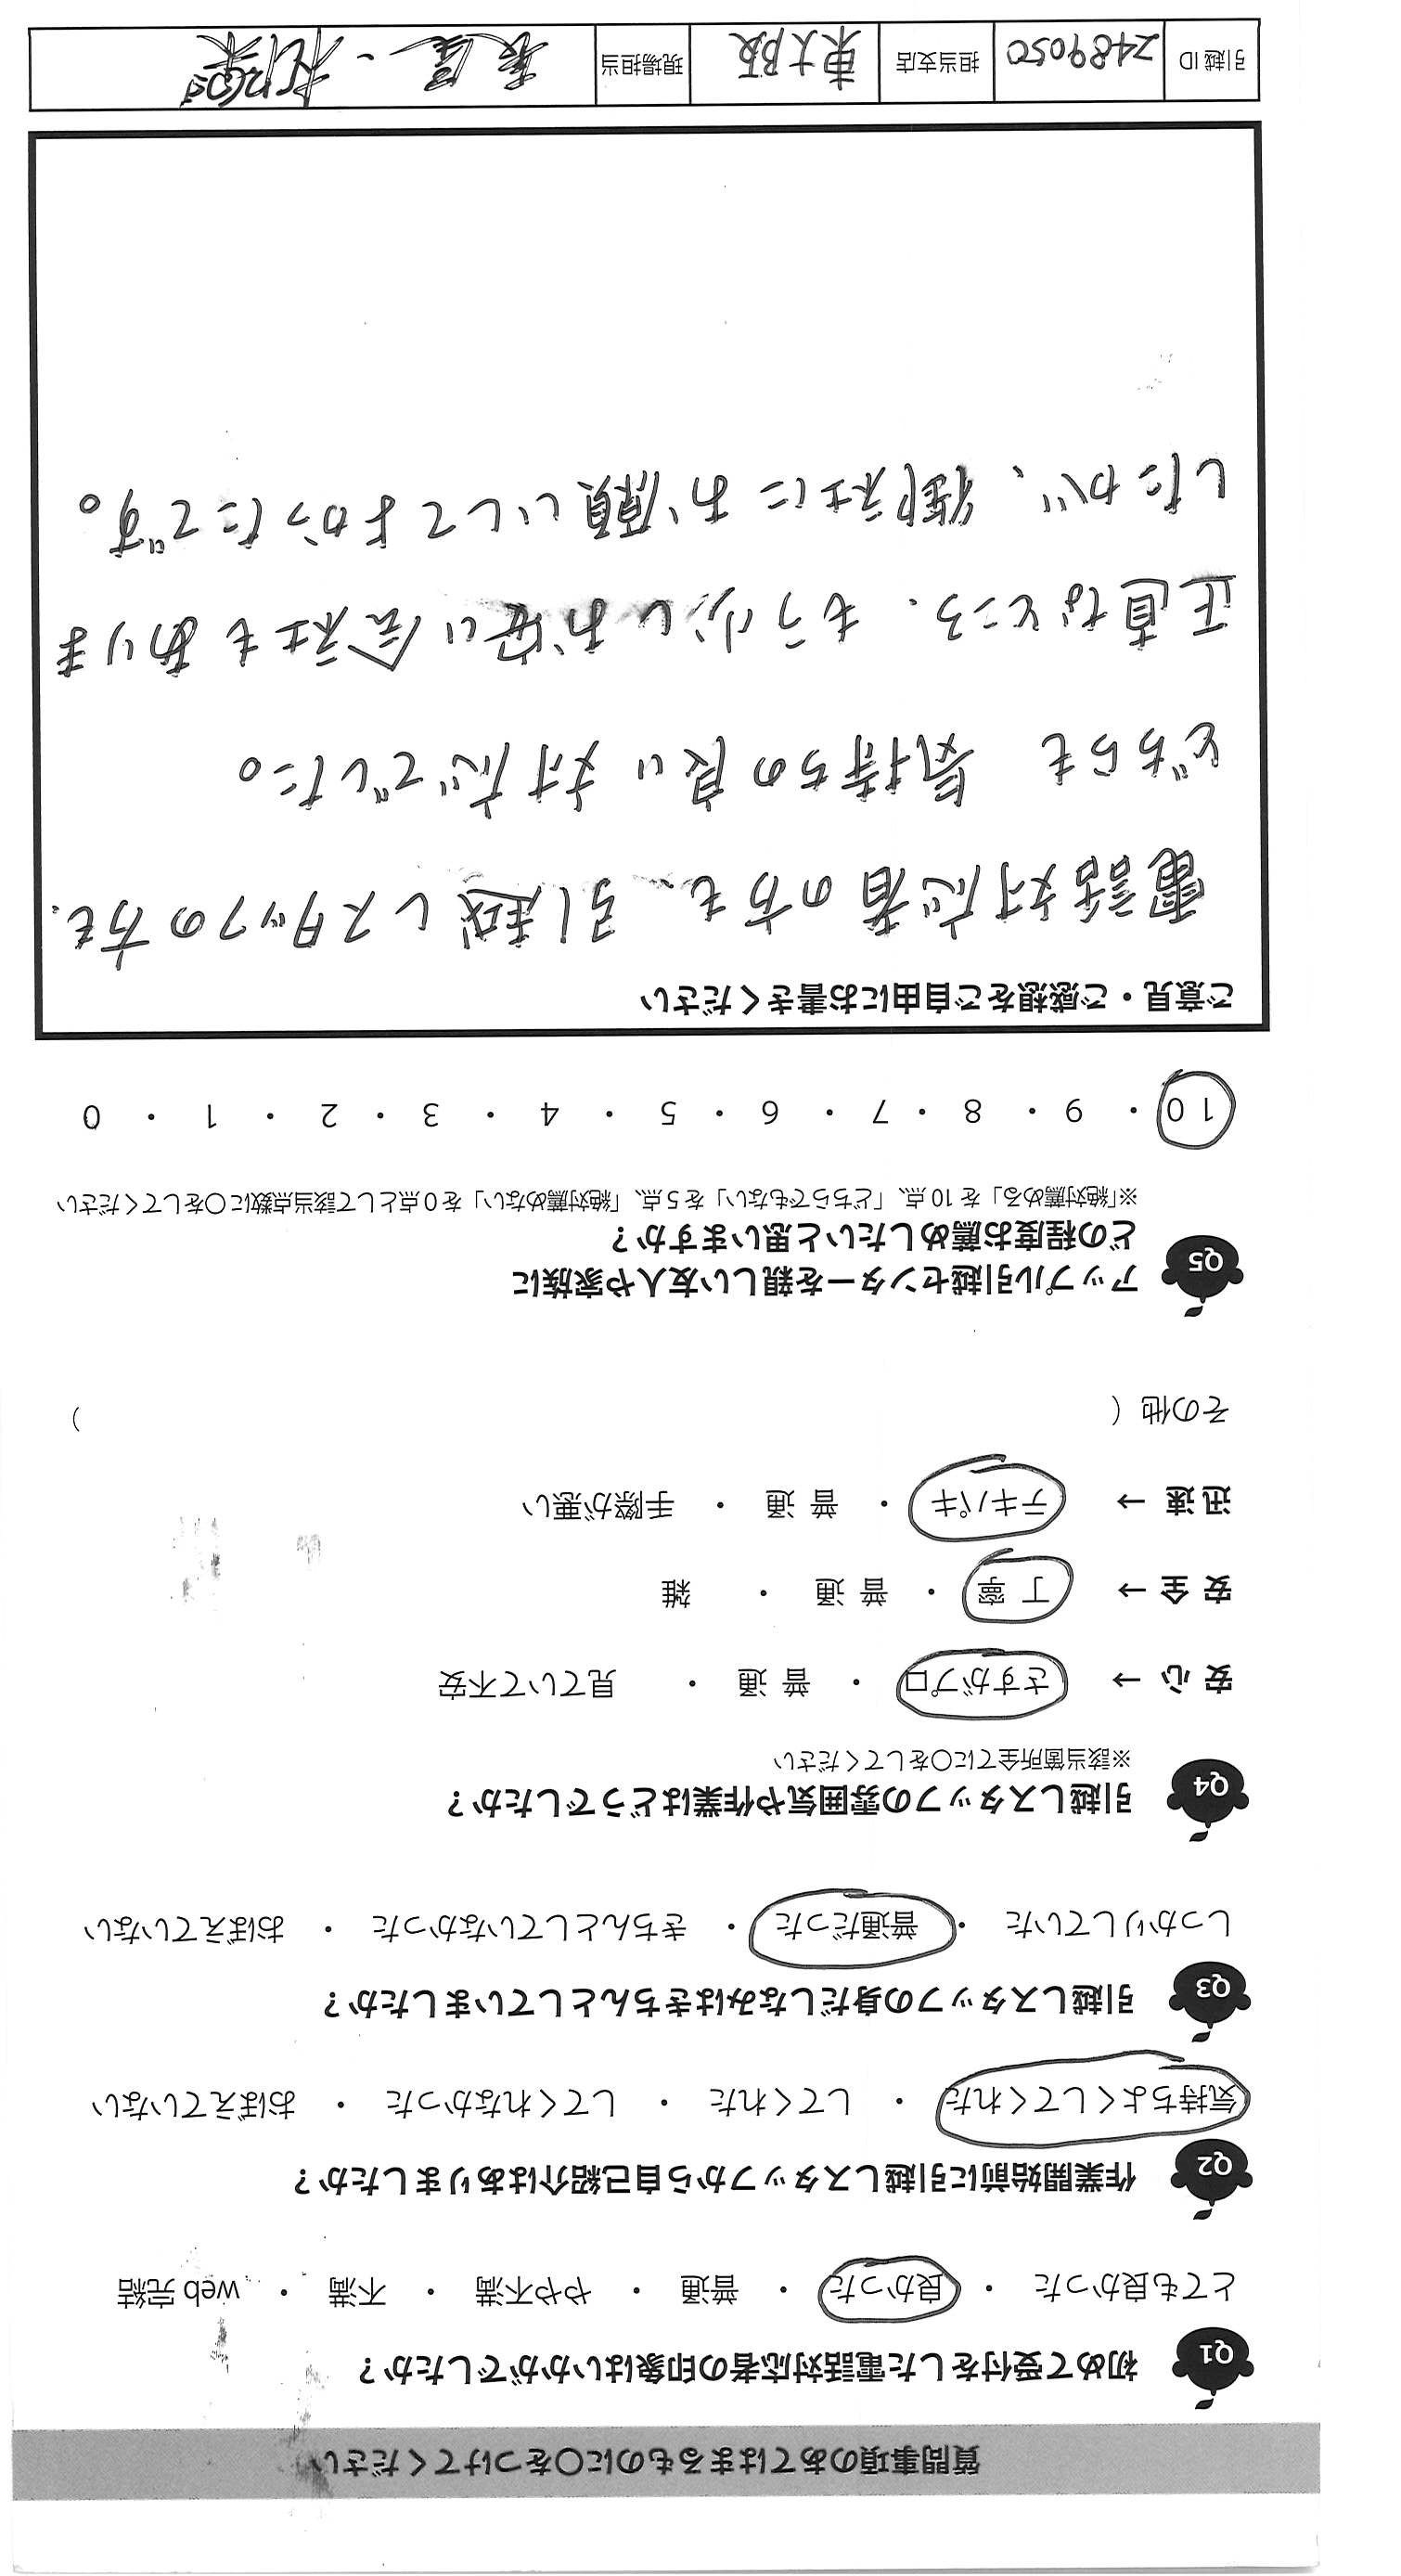 質問事項のあてはまるものに〇をつけてください
Q1 初めて受付をした電話対応者の印象はいかがでしたか？
とても良かった ・ 良かった ・ 普通 ・ やや不満 ・ 不満 ・ web 完結
Q2 作業開始前に引越しスタッフから自己紹介はありましたか？
気持ちよくしてくれた ・ してくれた ・ してくれなかった ・ おぼえていない
Q3 引越しスタッフの身だしなみはきちんとしていましたか？
しっかりしていた ・ 普通だった ・ きちんとしていなかった ・ おぼえていない
Q4 引越しスタッフの雰囲気や作業はどうでしたか？
※該当箇所全てに〇をしてください
安 心 → さすがプロ ・ 普 通 ・ 見ていて不安
安 全 → 丁 寧 ・ 普 通 ・ 雑
迅 速 → テキパキ ・ 普 通 ・ 手際が悪い
その他 （ ）
Q5 アップル引越センターを親しい友人や家族に
どの程度お薦めしたいと思いますか？
※「絶対薦める」を 10 点、「どちらでもない」を 5 点、「絶対薦めない」を 0 点として該当点数に〇をしてください
10 ・ 9 ・ 8 ・ 7 ・ 6 ・ 5 ・ 4 ・ 3 ・ 2 ・ 1 ・ 0
ご意見・ご感想をご自由にお書きください
電話対応者の方も、引越しスタッフの方も、
どちらも 気持ちの良い対応でした。
正直なところ、もう少しお安い会社もありま
したが、御社にお願いしてよかったです。
引越 ID 2489050 担当支店 東大阪 現場担当